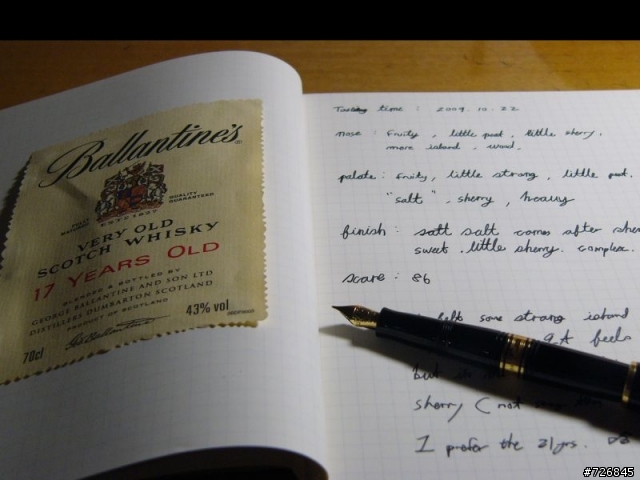 Ballantine's
FULLY MATURED
QUALITY GUARANTEED
ESTD 1827
VERY OLD
SCOTCH WHISKY
17 YEARS OLD
BLENDED & BOTTLED BY
GEORGE BALLANTINE AND SON LTD
DISTILLERS DUMBARTON SCOTLAND
PRODUCT OF SCOTLAND
43% vol
70cl
Tasting time : 2009. 10. 22
nose : fruity , little peat , little sherry.
more island , wood.
palate : fruity, little strong , little peat.
"salt" , sherry , heavy
finish : salt comes after sher
sweet . little sherry. complex.
score : 86
felt some strong island
feels
but
sherry ( not
I prefer the 21yrs.
#726845